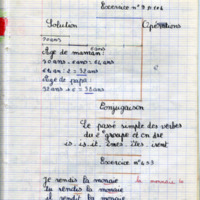 Exercice n° 9 p 106
Solution Opérations
70 ans
6 ans
Âge de maman:
70 ans - 6 ans = 64 ans
64 an : 2 = 32 ans
Âge de papa:
32 ans + 6 = 38 ans
Conjugaison
Le passé simple des verbes
du 2e groupe et en dre
is. is. it. îmes. îtes. irent
Exercice n° 653
Je rendis la monaie
Tu rendis la monaie
il rendit la monaie